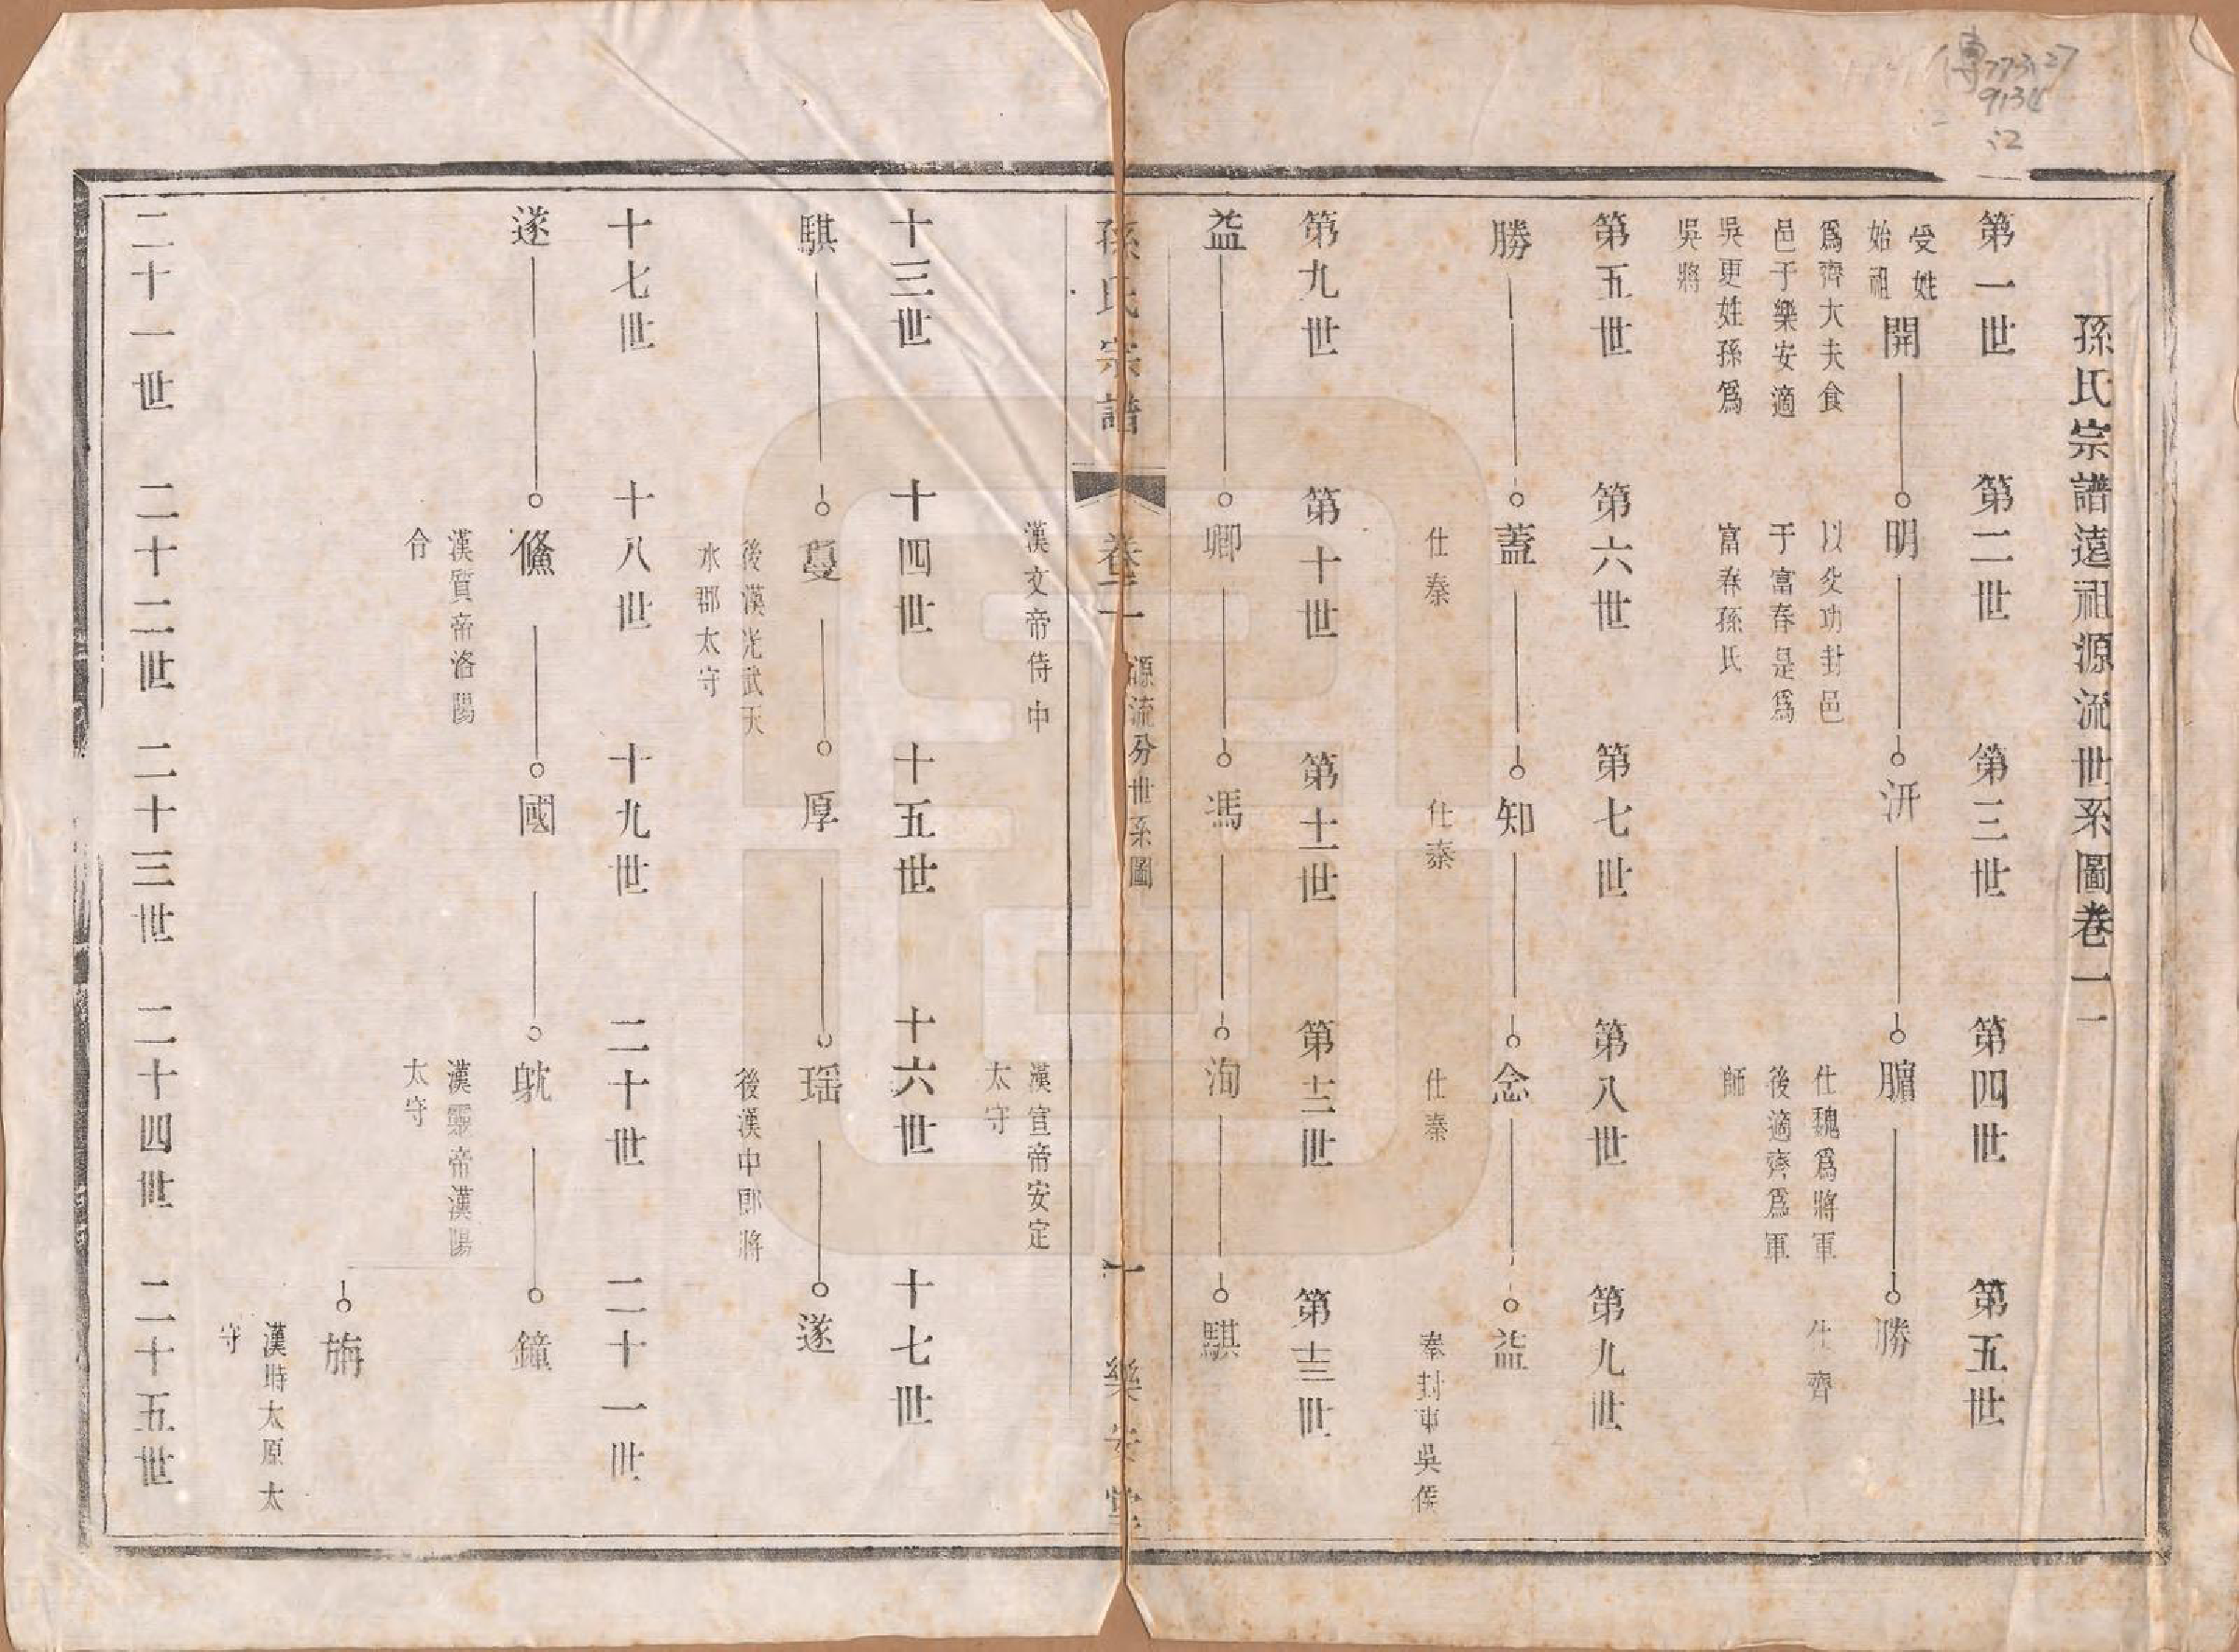 孫氏宗譜遠祖源流世系圖卷二一
第一世 第二世 第三世 第四世 第五世
受姓始祖 開 明 汧 臏 勝
爲齊大夫食邑于樂安適吳更姓孫爲吳將
以父功封邑于富春是爲富春孫氏
仕魏爲將軍後適齊爲軍師
仕齊
第五世 第六世 第七世 第八世 第九世
勝 蓋 知 念 益
仕秦
仕秦
仕秦
秦封車吳侯
第九世 第十世 第十一世 第十二世 第十三世
益 卿 馮 洵 騏
漢文帝侍中
漢宣帝安定太守
孫氏宗譜 卷二一 源流分世系圖 一 樂安堂
十三世 十四世 十五世 十六世 十七世
騏 蔓 厚 瑶 遂
後漢光武天水郡太守
後漢中郎將
十七世 十八世 十九世 二十世 二十一世
遂 儵 國 躭 鐘
漢質帝洛陽令
漢靈帝漢陽太守
旃
漢時太原太守
二十一世 二十二世 二十三世 二十四世 二十五世
傳
773.27
9134
:2